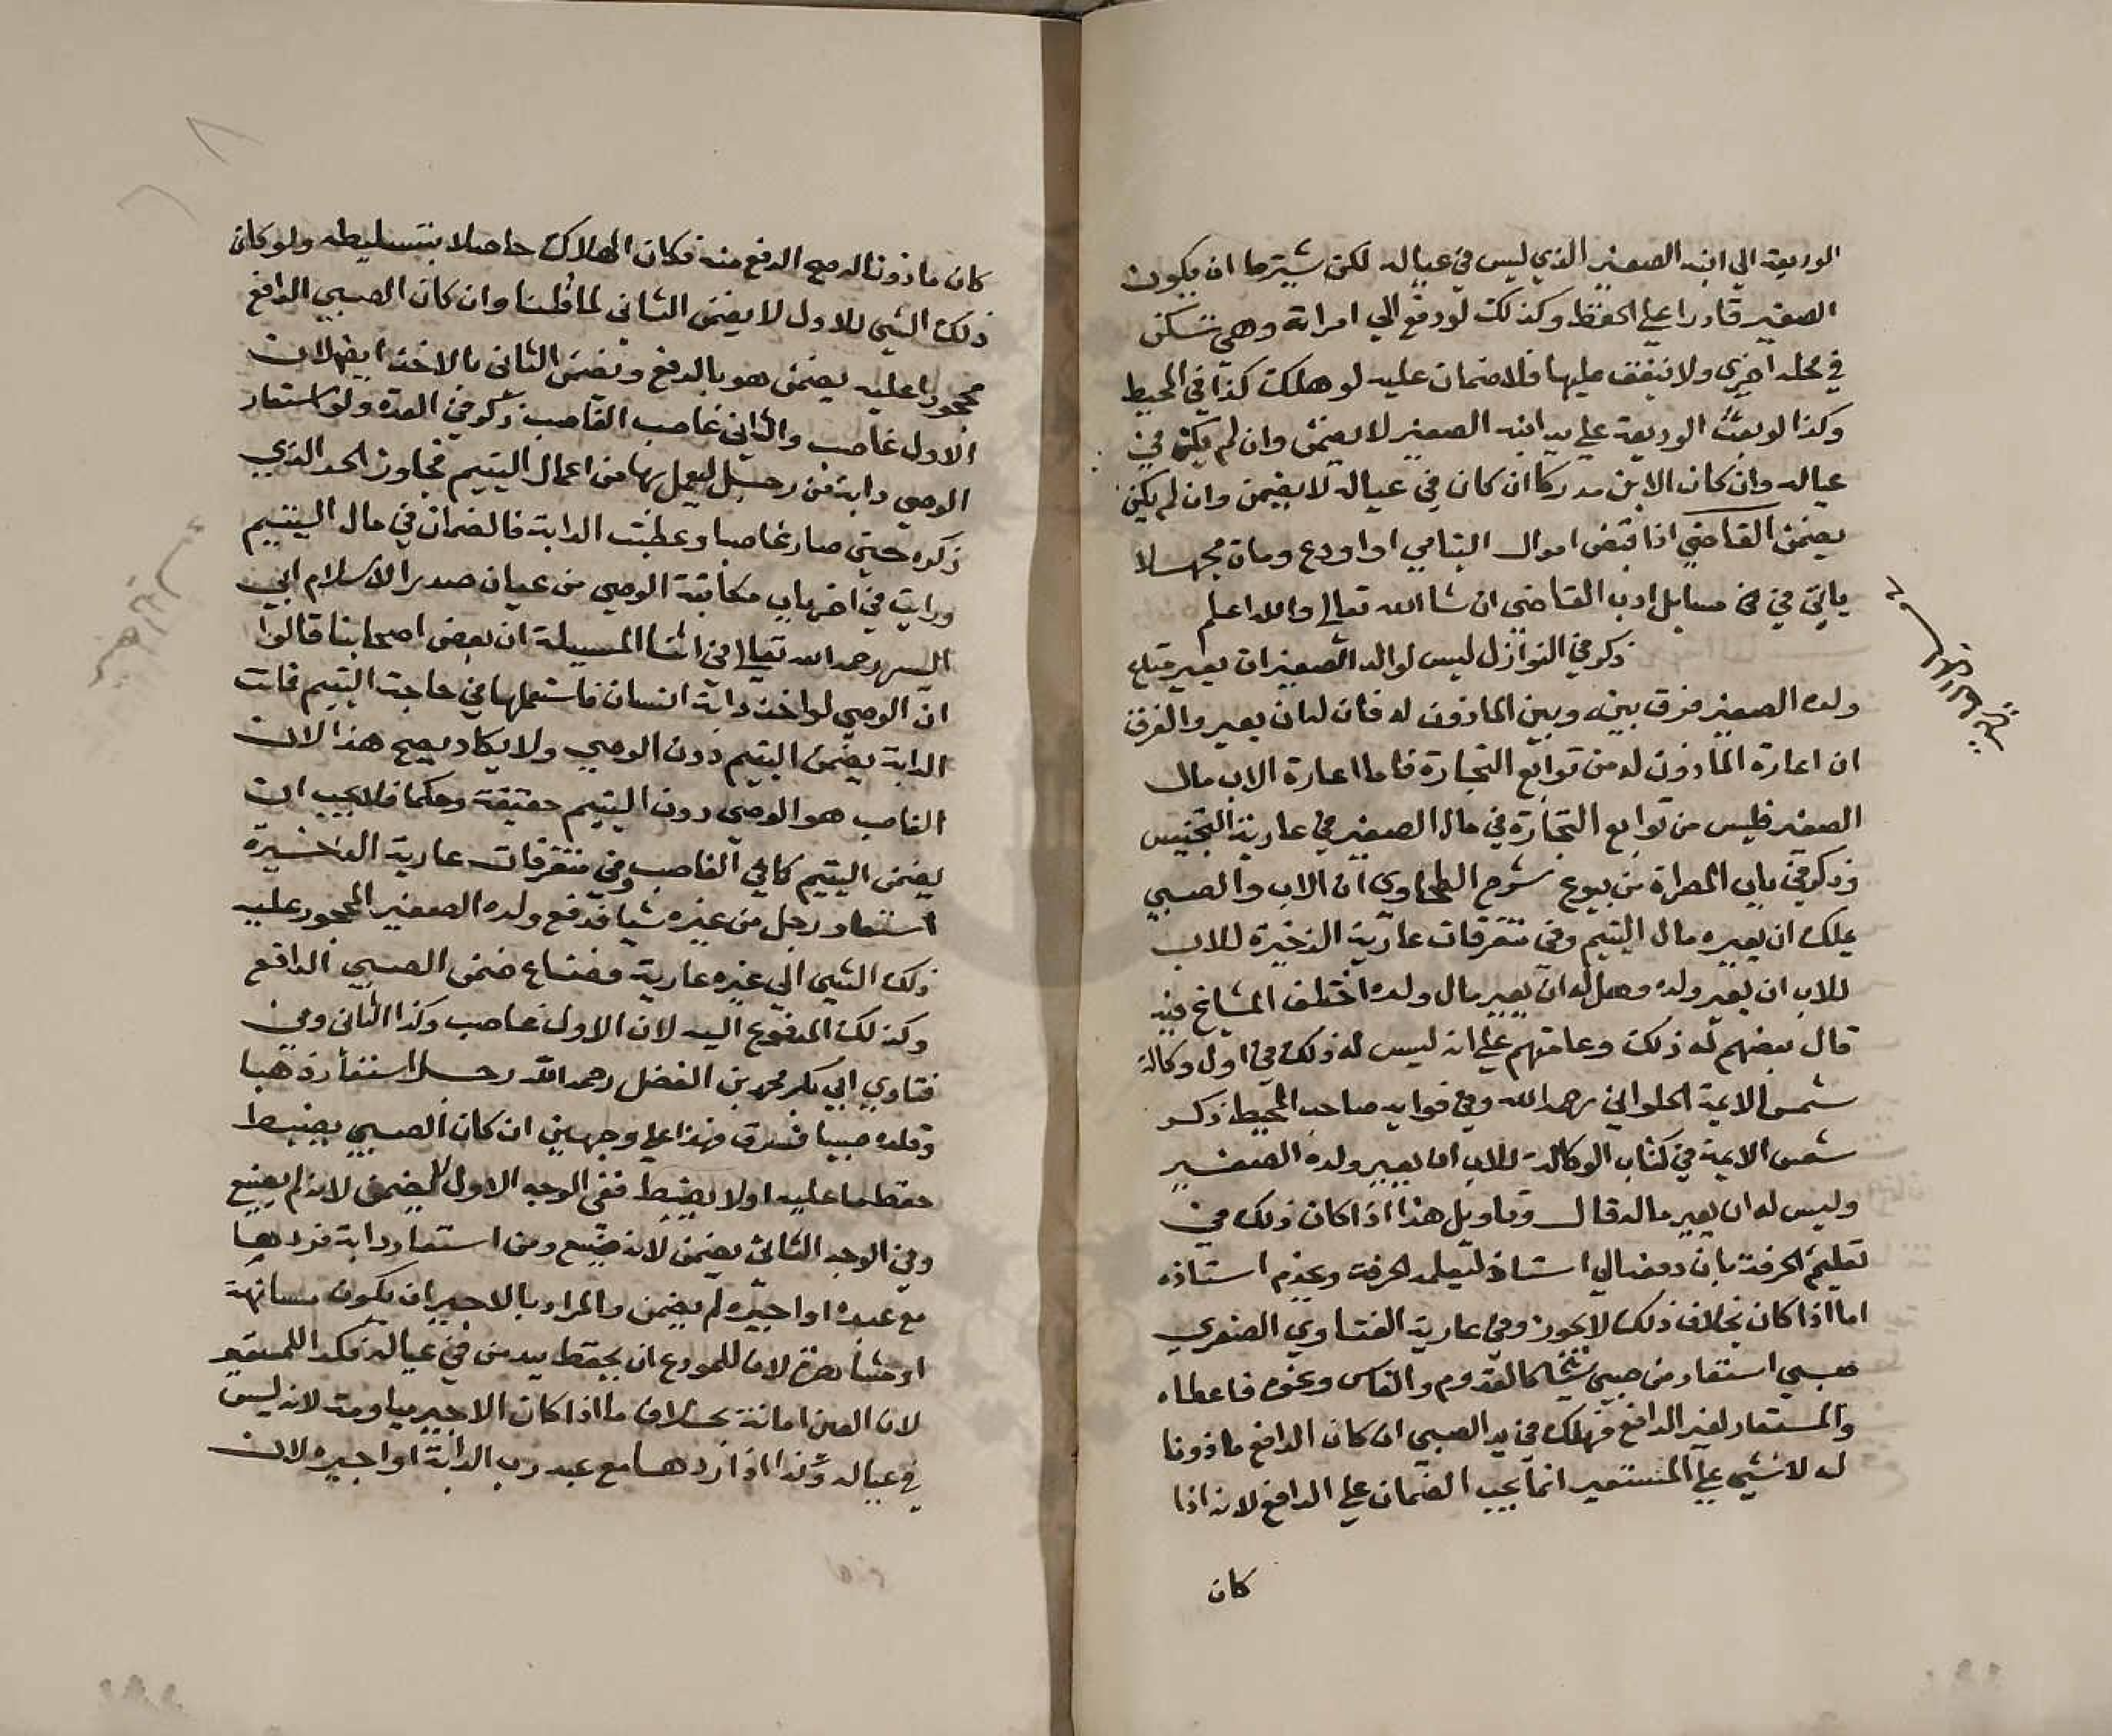 الوديعة الي ابنه الصغير الذي ليس في عياله لكن يشترط ان يكون
الصغير قادرا علي الحفظ وكذلك لو دفع الي امراته وهي تسكن
في محله اخري ولا ينفق عليها فلا ضمان عليه لو هلكت كذا في المحيط
وكذا لو بعث الوديعة علي يد ابنه الصغير لا يضمن وان لم يكن في
عياله وان كان الابن مدركا ان كان في عياله لا يضمن وان لم يكن
يضمن القاضي اذا قبض اموال اليتامي او اودع ومات مجهلا
ياتي في مسايل ادب القاضي ان شا الله تعالي والله اعلم
ذكر في النوازل ليس لوالد الصغير ان يعير متاع
ولده الصغير فرق بينه وبين الماذون له فان له ان يعير والفرق
ان اعارة الماذون له من توابع التجارة فاما اعارة الاب مال
الصغير فليس من توابع التجارة في مال الصغير في عارية التجنيس
وذكر في باب المصراة من بيوع شرح الطحاوي ان الاب والصبي
يملك ان يعيره مال اليتيم وفي متفرقات عارية الذخيرة للاب
للاب ان يعير ولده وهل له ان يعير مال ولده اختلف المشايخ فيه
قال بعضهم له ذلك وعامتهم علي انه ليس له ذلك في اول وكالة
شمس الايمة الحلواني رحمه الله وفي فوايد صاحب المحيط ذكر
شمس الايمة في كتاب الوكالة للاب ان يعير ولده الصغير
وليس له ان يعير ماله قال وتاويل هذا اذا كان ذلك في
تعليم الحرفة بان دفعه الي استاذ ليعلمه الحرفة ويخدم استاذه
اما اذا كان بخلاف ذلك لا يجوز وفي عارية الفتاوي الصغري
صبي استعار من صبي شيا كالقدوم والفاس ونحوه فاعطاه
والمستعار لغير الدافع فهلك في يد الصبي ان كان الدافع ماذونا
له لا شي علي المستعير انما يجب الضمان علي الدافع لانه اذا
كان
كان ماذونا له صح الدفع منه فكان الهلاك حاصلا بتسليطه ولو كان
ذلك الشي للاول لا يضمن الثاني لما قلنا وان كان الصبي الدافع
محجورا عليه يضمن هو بالدفع ويضمن الثاني بالاخذ ايضا لان
الاول غاصب والثاني غاصب الغاصب ذكره في العدة ولو استعار
الوصي دابة من رجل ليعمل بها من اعمال اليتيم فجاوز الحد الذي
ذكره حتي صار غاصبا وعطبت الدابة فالضمان في مال اليتيم
ورايت في اخر باب مكاتبة الوصي من صدر الاسلام ابي
اليسر رحمه الله تعالي في اثنا المسيلة ان بعض اصحابنا قالوا
ان الوصي لو اخذ دابة انسان فاستعملها في حاجة اليتيم فماتت
الدابة يضمن اليتيم دون الوصي ولا يكاد يصح هذا لان
الغاصب هو الوصي دون اليتيم حقيقة وحكما فلا يجب ان
يضمن اليتيم كما في الغاصب وفي متفرقات عارية الذخيرة
استعار رجل من غيره شيا فدفع ولده الصغير المحجور عليه
ذلك الشي الي غيره عارية فضاع ضمن الصبي الدافع
وكذلك المدفوع اليه لان الاول غاصب وكذا الثاني وفي
فتاوي ابي بكر محمد بن الفضل رحمه الله رجل استعار ذهبا
وقلده صبيا فسرق فهذا علي وجهين ان كان الصبي يضبط
حفظ ما عليه اولا يضبط ففي الوجه الاول لا يضمن لانه لم يضيع
وفي الوجه الثاني يضمن لانه ضيع ومن استعار دابة فردها
مع عبده او اجيره لم يضمن والمراد بالاجير ان يكون مسانهة
او مشاهرة لان للمودع ان يحفظ بيد من في عياله فكذا للمستعير
لان العين امانة بخلاف ما اذا كان الاجير مياومة لانه ليس
في عياله وكذا اذا ردها مع عبد رب الدابة او اجيره لان